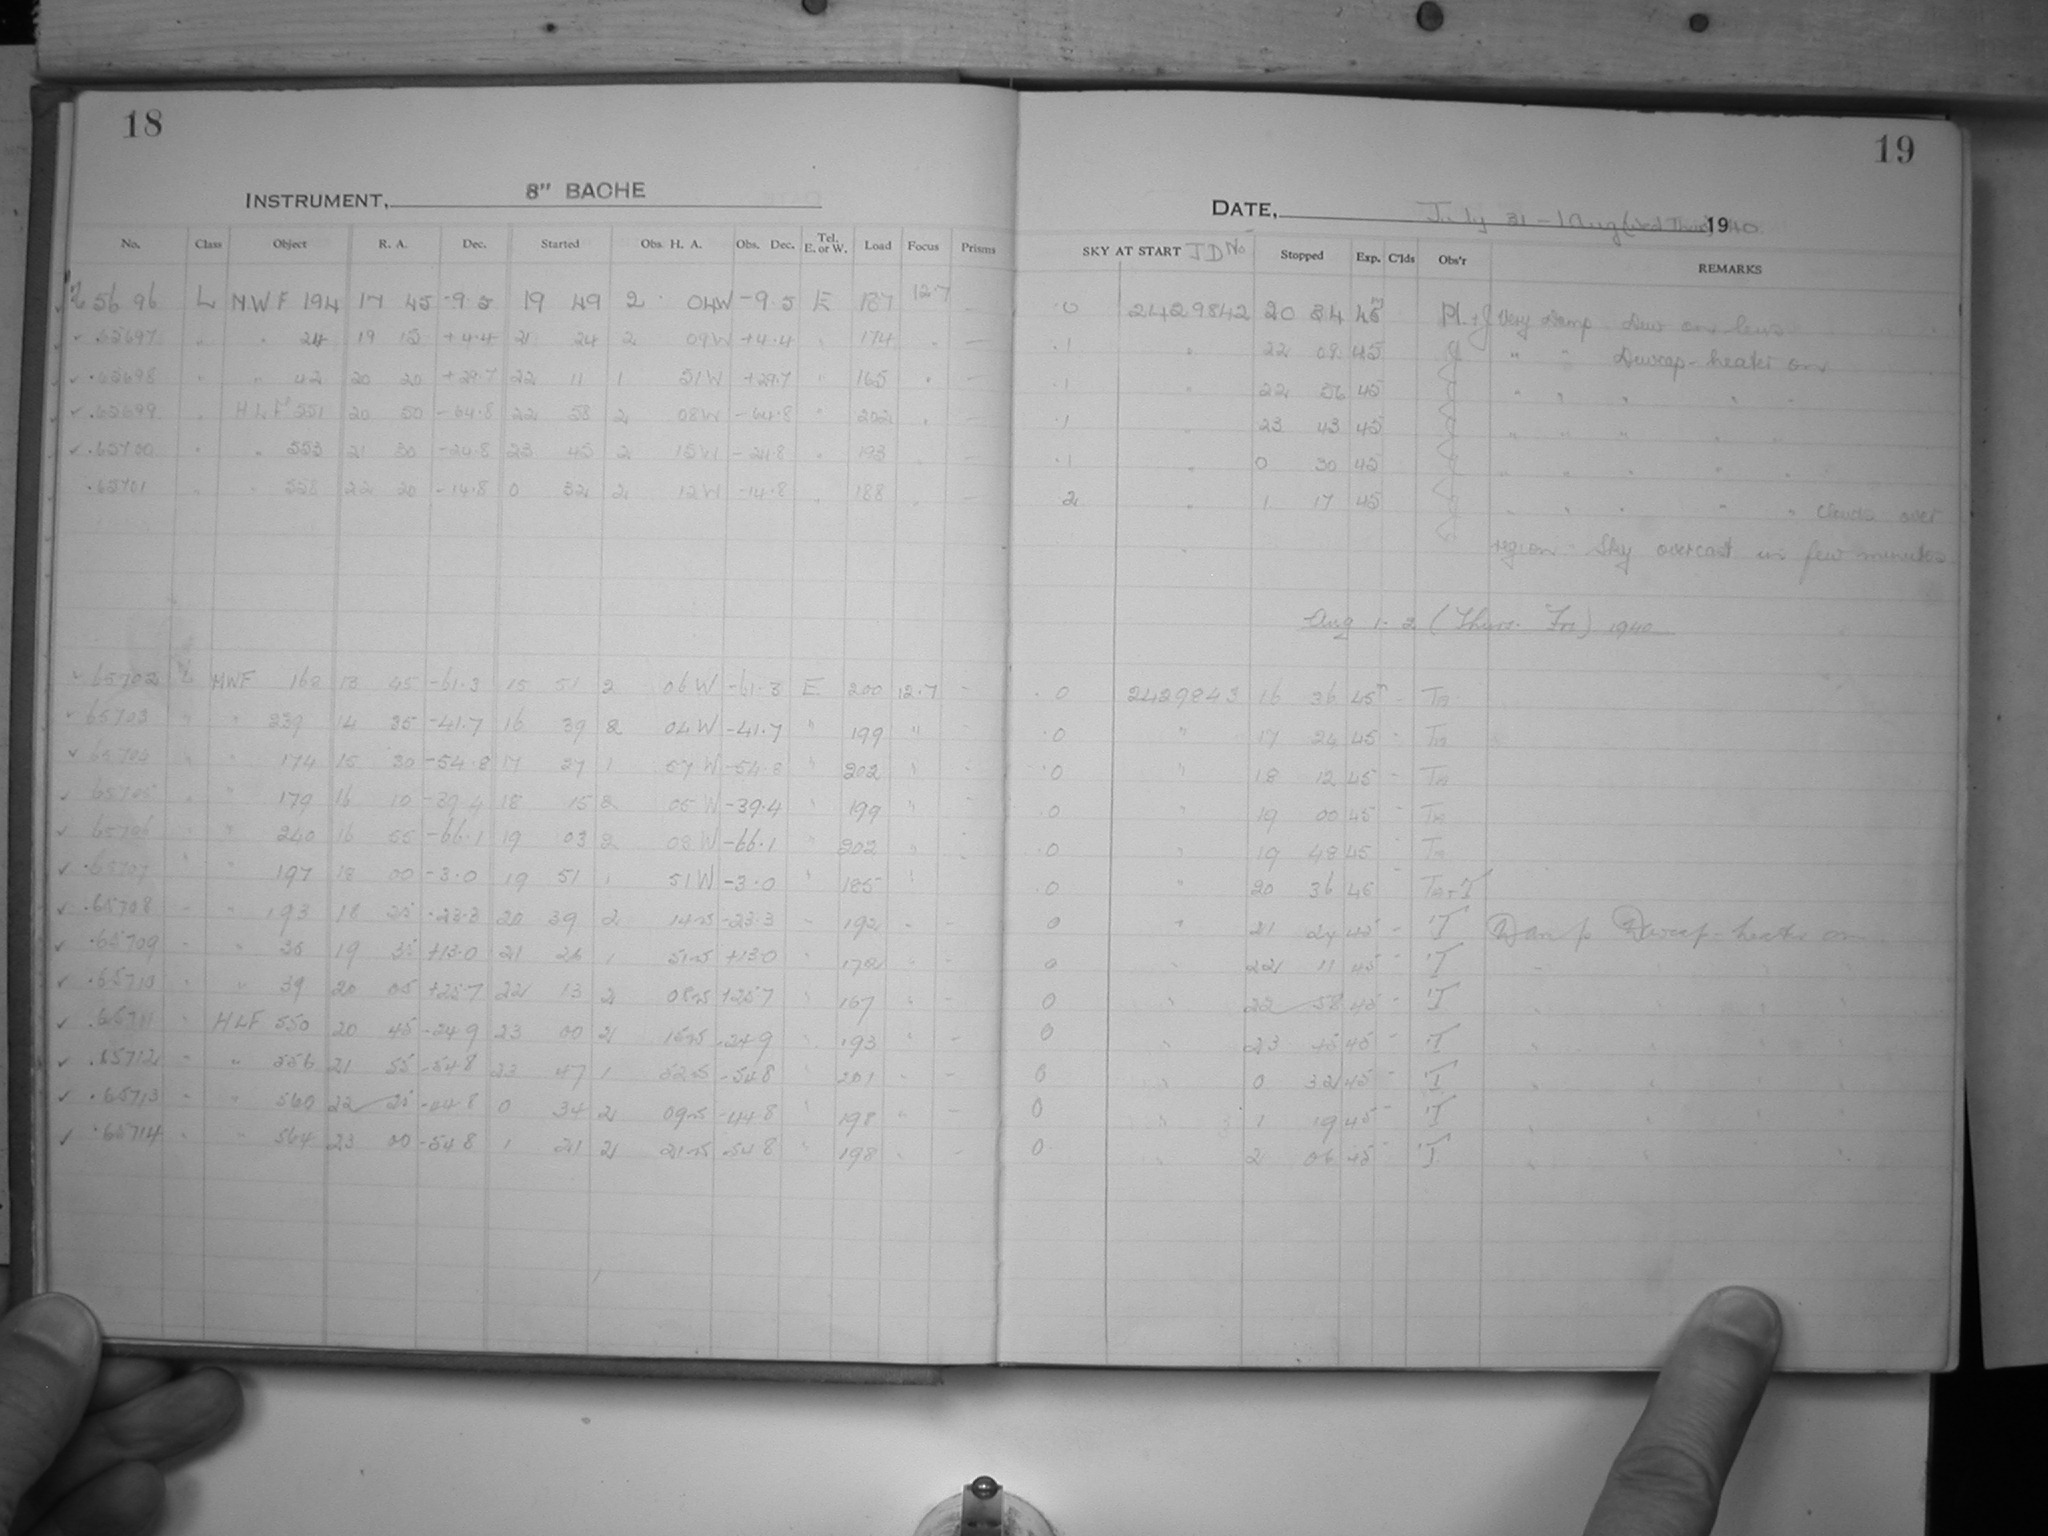 18
INSTRUMENT, 8" BACHE
No. Class Object R. A. Dec. Started Obs. H. A. Obs. Dec. Tel. E. or W. Load Focus Prisms
56 96 L MWF 194 17 45 -9.5 19 49 2 04W -9.5 E 187 12.7 –
✓ .65697 " " 24 19 15 +4.4 21 24 2 09W +4.4 " 174 " –
✓ .65698 " " 42 20 20 +29.7 22 11 1 51W +29.7 " 165 " –
✓ .65699 " HLF 551 20 50 -64.8 22 58 2 08W -64.8 " 202 " –
✓ .65700 " " 553 21 30 -24.8 23 45 2 15W " 193 " –
.65701 " " 558 22 20 -14.8 0 32 2 12W -14.8 " 188 " –
✓ 65702 L MWF 13 45 -61.3 15 51 2 06W -61.3 E 200 12.7 –
✓ 65703 " " 239 14 35 -41.7 16 39 2 04W -41.7 " 199 " –
✓ 65704 " " 174 15 30 -54.8 17 27 1 57W -54.8 " 202 " –
✓ 65705 " " 179 16 10 -39.4 18 15 2 05W -39.4 " 199 " –
✓ 65706 " " 240 16 55 -66.1 19 03 2 08W -66.1 " 202 " –
✓ .65707 " " 197 18 00 -3.0 19 51 1 51W -3.0 " 185 " –
✓ .65708 " " 193 18 25 -23.3 20 39 2 14W -23.3 " 192 " –
✓ .65709 " " 19 35 +13.0 21 26 1 51W +13.0 " 172 " –
✓ .65710 " " 39 20 05 +25.7 22 13 2 08W +25.7 " 167 " –
✓ .65711 " HLF 550 20 45 -24.9 23 00 2 15W -24.9 " 193 " –
✓ .65712 " " 556 21 55 -54.8 23 47 1 52W -54.8 " 201 " –
✓ .65713 " " 560 22 25 -44.8 0 34 2 09W -44.8 " 198 " –
✓ .65714 " " 564 23 00 -54.8 1 21 2 21W -54.8 " 198 " –
19
DATE, July 31 – 1 Aug (Wed Thur) 1940.
SKY AT START JD No Stopped Exp. C'lds Obs'r REMARKS
.0 2429842 20 34 45m Very Damp Dew on lens
.1 " 22 09 45 J " " Dewcap-heater on
.1 " 22 56 45 " " " " "
.1 " 23 43 45 " " " " "
.1 " 0 30 45 " " " " "
2 " 1 17 45 " " " " " Clouds over
region – Sky overcast in few minutes
Aug 1-2 (Thurs. Fri) 1940
.0 2429843 16 36 45m –
.0 " 17 24 45 –
.0 " 18 12 45 –
.0 " 19 00 45 –
.0 " 19 48 45 –
.0 " 20 36 45 –
0 " 21 24 45 – Damp Dewcap-heater on
0 " 22 11 45 – " " "
0 " 22 58 45 – " " "
0 " 23 45 45 – " " "
0 " 0 32 45 – " " "
0 " 1 19 45 – " " "
0 " 2 06 45 – " " "